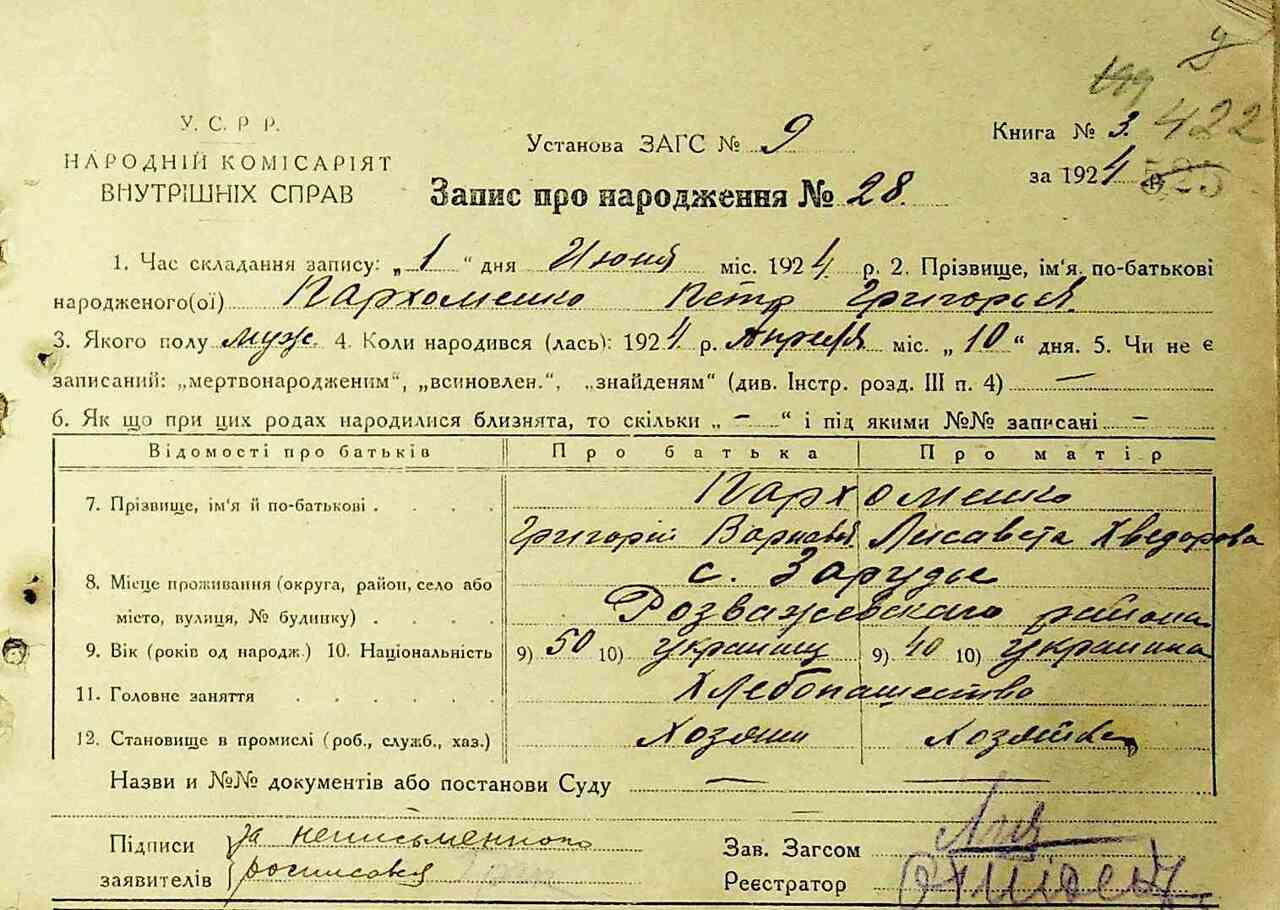 422
У. С. Р Р.
НАРОДНІЙ КОМІСАРІЯТ
ВНУТРІШНІХ СПРАВ
Установа ЗАГС № 9
Книга № 3.
за 1924
Запис про народження № 28.
1. Час складання запису: „1“ дня Июня міс. 1924 р. 2. Прізвище, ім'я, по-батькові
народженого(ої) Пархоменко Петр Григорьев.
3. Якого полу муж. 4. Коли народився (лась): 1924 р. Апреля міс. „10“ дня. 5. Чи не є
записаний: „мертвонародженим“, „всиновлен.“, „знайденям“ (див. Інстр. розд. III п. 4) —
6. Як що при цих родах народилися близнята, то скільки „ – “ і під якими №№ записані –
Відомості про батьків Про батька Про матір
7. Прізвище, ім'я й по-батькові . . . . Пархоменко
Григорій Варнав. Лисавета Хведорова
8. Місце проживання (округа, район, село або с. Зарудье
місто, вулиця, № будинку) . . . . Розважевского района
9. Вік (років од народж.) 10. Національність 9) 50 10) украинец 9) 40 10) украинка
11. Головне заняття . . . . . . Хлебопашество
12. Становище в промислі (роб., служб., хаз.) Хозяин Хозяйка
Назви и №№ документів або постанови Суду — —
Підписи За неписьменного
заявителів росписовся
Зав. Загсом
Реєстратор